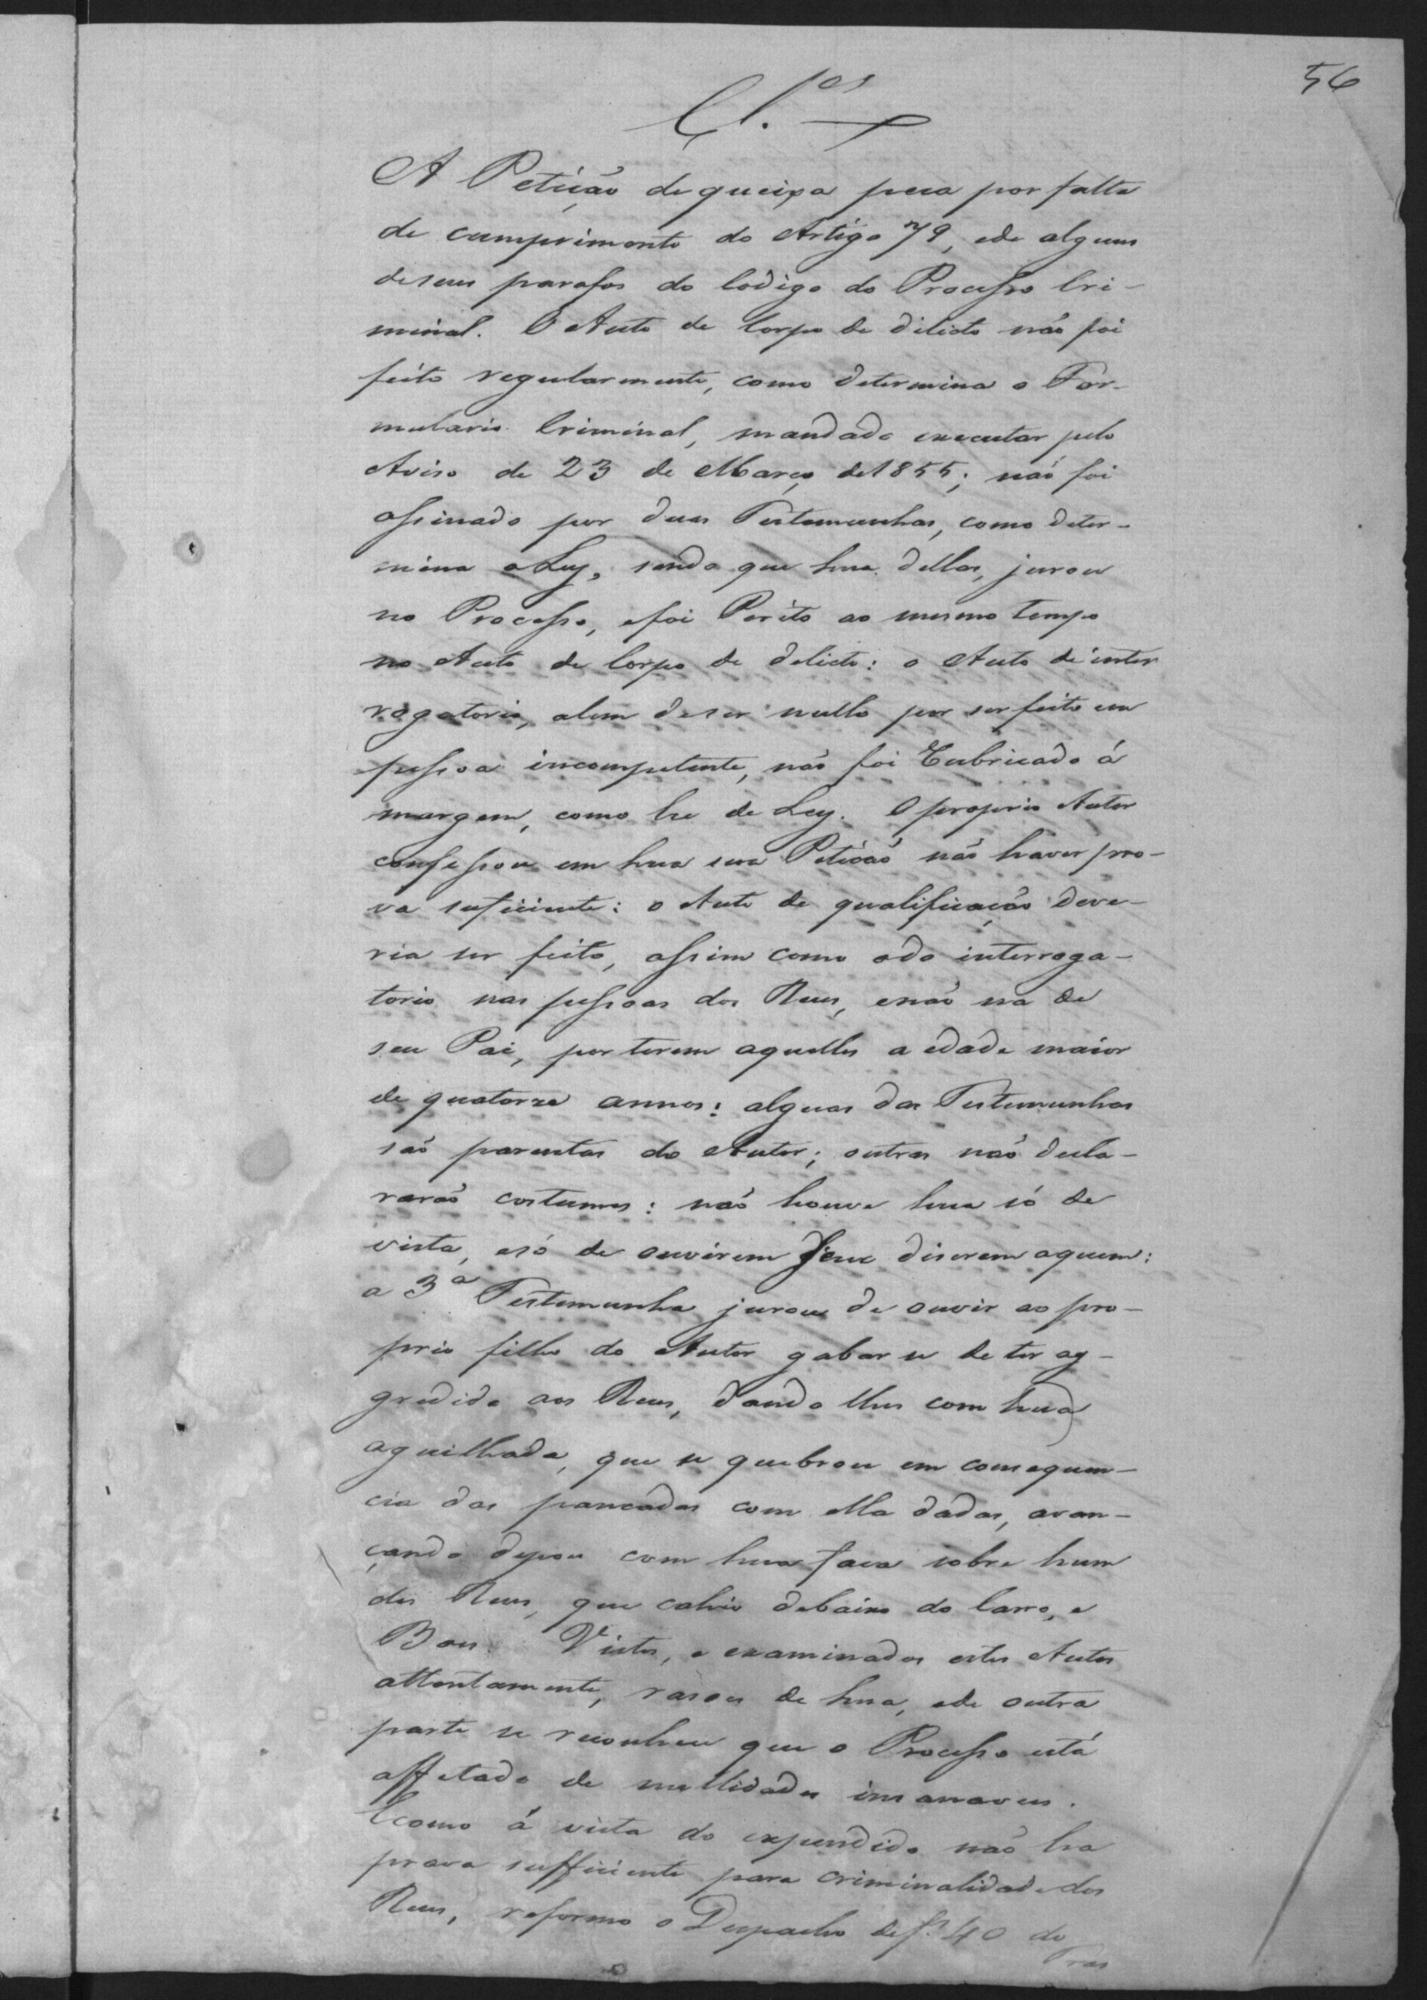 56
Cl.os
A Petição de queixa peca por falta
de cumprimento do Artigo 79, e de alguns
de seus parafos do Codigo do Processo Cri-
minal. O Auto de Corpo de dilicto não foi
feito regularmente, como determina o For-
mulario Criminal, mandado executar pelo
Aviso de 23 de Março de 1855; não foi
assinado por duas Testemunhas, como deter-
mina a Ley, sendo que hua dellas, jurou
no Processo, e foi Perito ao mesmo tempo
no Auto de Corpo de delicto: o Auto de inter
rogatorio, alem de ser nullo por ser feito em
pessoa incompetente, não foi rubricado á
margem, como he de Ley. O proprio Autor
confessou em hua sua Petição não haver pro-
va suficiente: o Auto de qualificação deve-
ria ser feito, assim como o do interroga-
torio nas pessoas dos Reus, e não na de
seu Pai, por terem aquelles a edade maior
de quatorze annos: alguas das Testemunhas
são parentas do Autor; outras não decla-
rarão costumes: não houve hua só de
vista, e só de ouvirem diserem aquem:
a 3ª Testemunha jurou de ouvir ao pro-
prio filho do Autor gabar se de ter ag-
gredido aos Reus, dando lhes com hua
aguilhada, que se quebrou em consequen-
cia das pancadas com ella dadas, avan-
çando depois com hua faca sobre hum
dos Reus, que cahio debaixo do Carro, e
Bois. Vistos, e examinados estes Autos
attentamente, rasões de hua, e de outra
parte se reconheu que o Processo está
affetado de nullidades insanaveis.
E como á vista do expendido não ha
prova sufficiente para criminalidade dos
Reus, reformo o Despacho de fs. 40 do
Pras